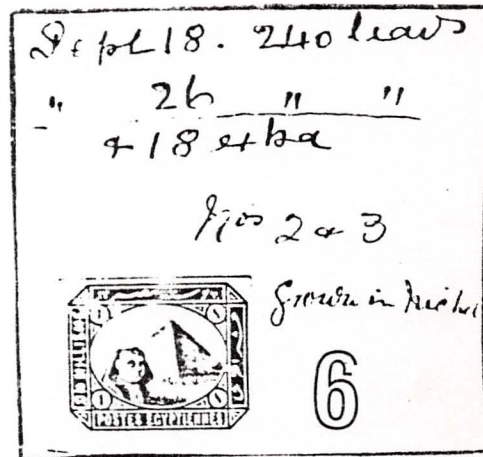 Sept 18. 240 leaves
" 26 " "
& 18 extra
Nos 2 & 3
Grown in
UN MILLIEME
POSTES EGYPTIENNES
1 1
1 1
6